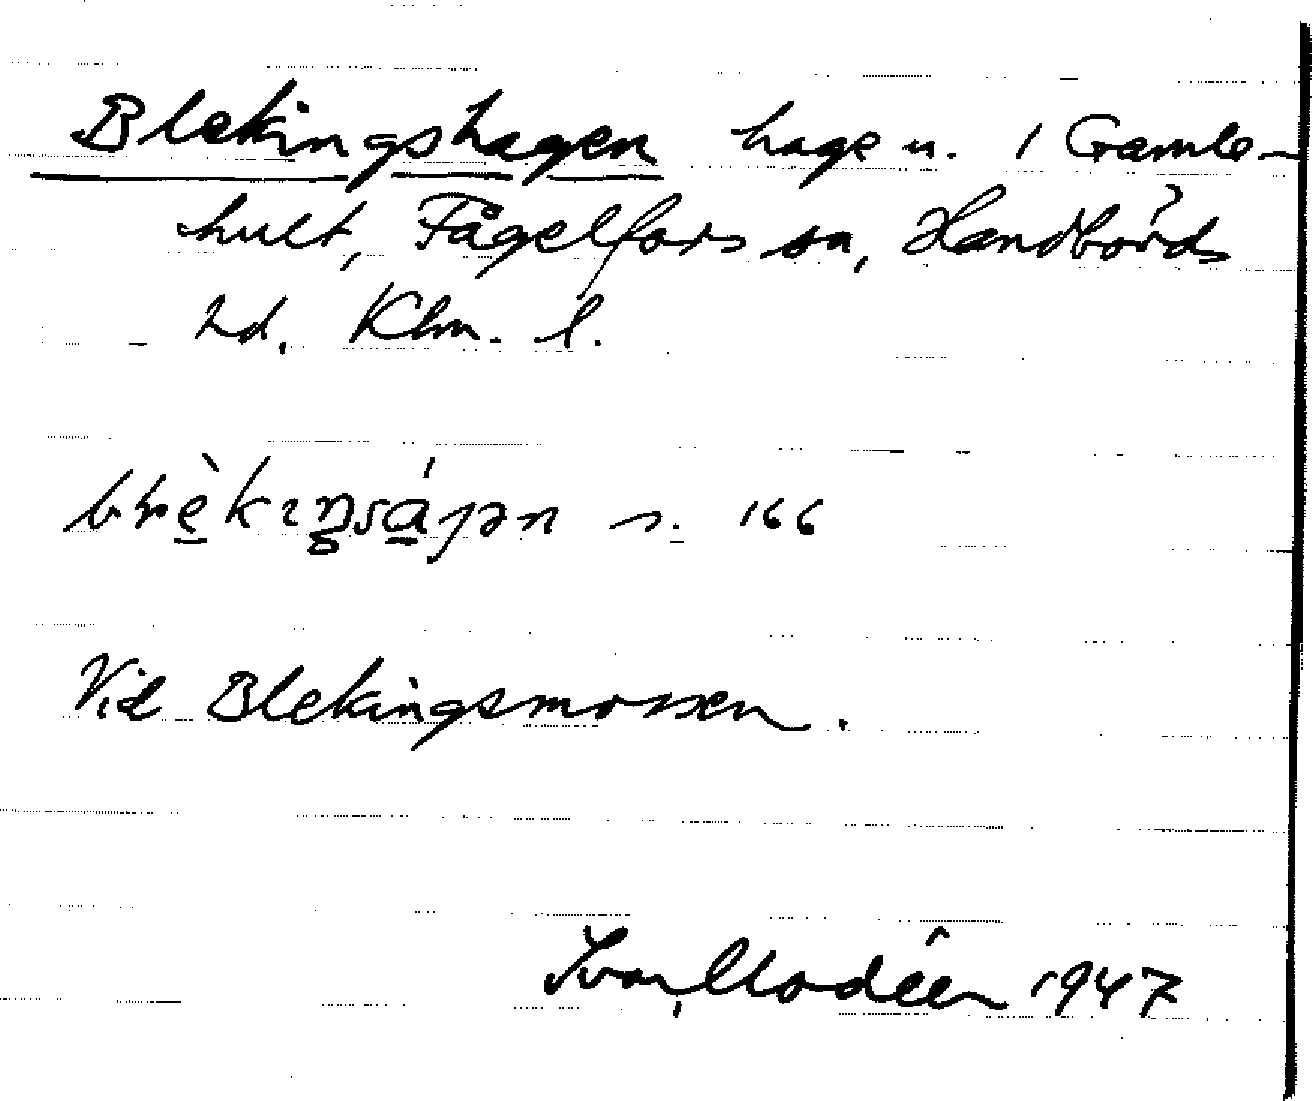 Blekingshagen hage u. 1 Gamle-
hult, Fågelfors sn, Handbörds
hd. Klm. l.
s. 166
Vid Blekingsmossen.
Ivar Modéer 1947